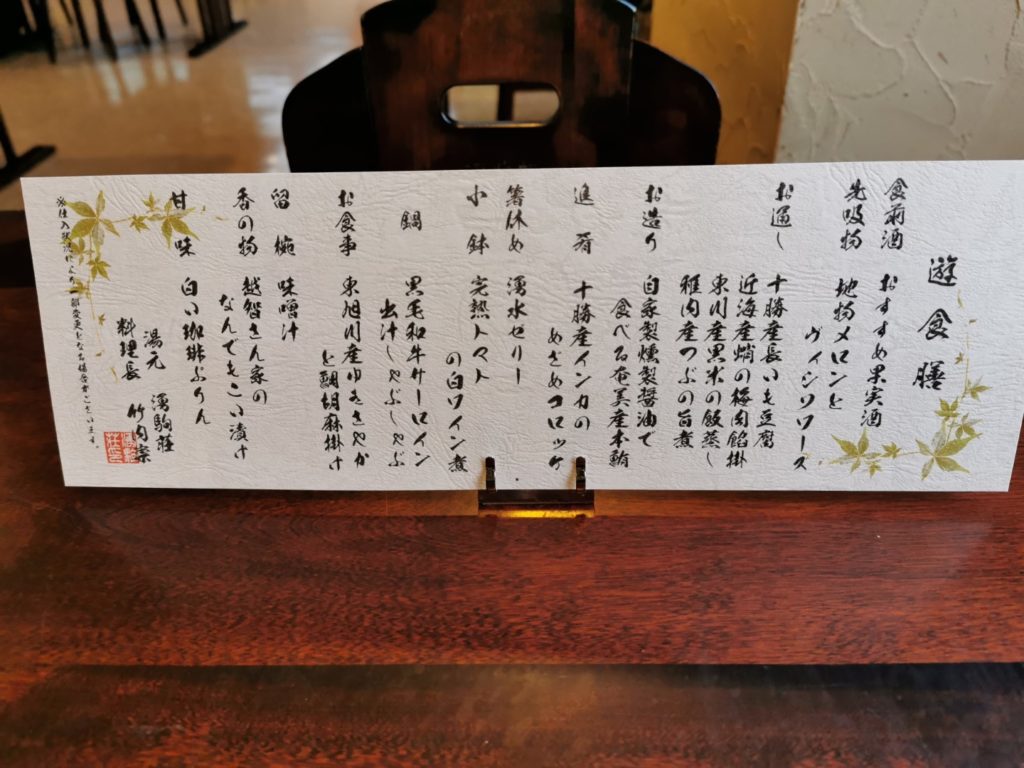 遊食膳
食前酒　おすすめ果実酒
先吸物　地物メロンと
ヴィシソワーズ
お通し　十勝産長いも豆腐
近海産蛸の梅肉餡掛
東川産黒米の飯蒸し
稚内産つぶの旨煮
お造り　自家製燻製醤油で
食べる奄美産本鮪
進肴　十勝産インカの
めざめコロッケ
箸休め　湧水ゼリー
小鉢　完熟トマト
の白ワイン煮
鍋　黒毛和牛サーロイン
出汁しゃぶしゃぶ
お食事　東旭川産ゆきさやか
と鯛胡麻掛け
留椀　味噌汁
香の物　越智さん家の
なんでもこい漬け
甘味　白い珈琲ぷりん
湯元　湧駒荘
料理長　竹内崇
※仕入状況により一部変更となる場合がございます。